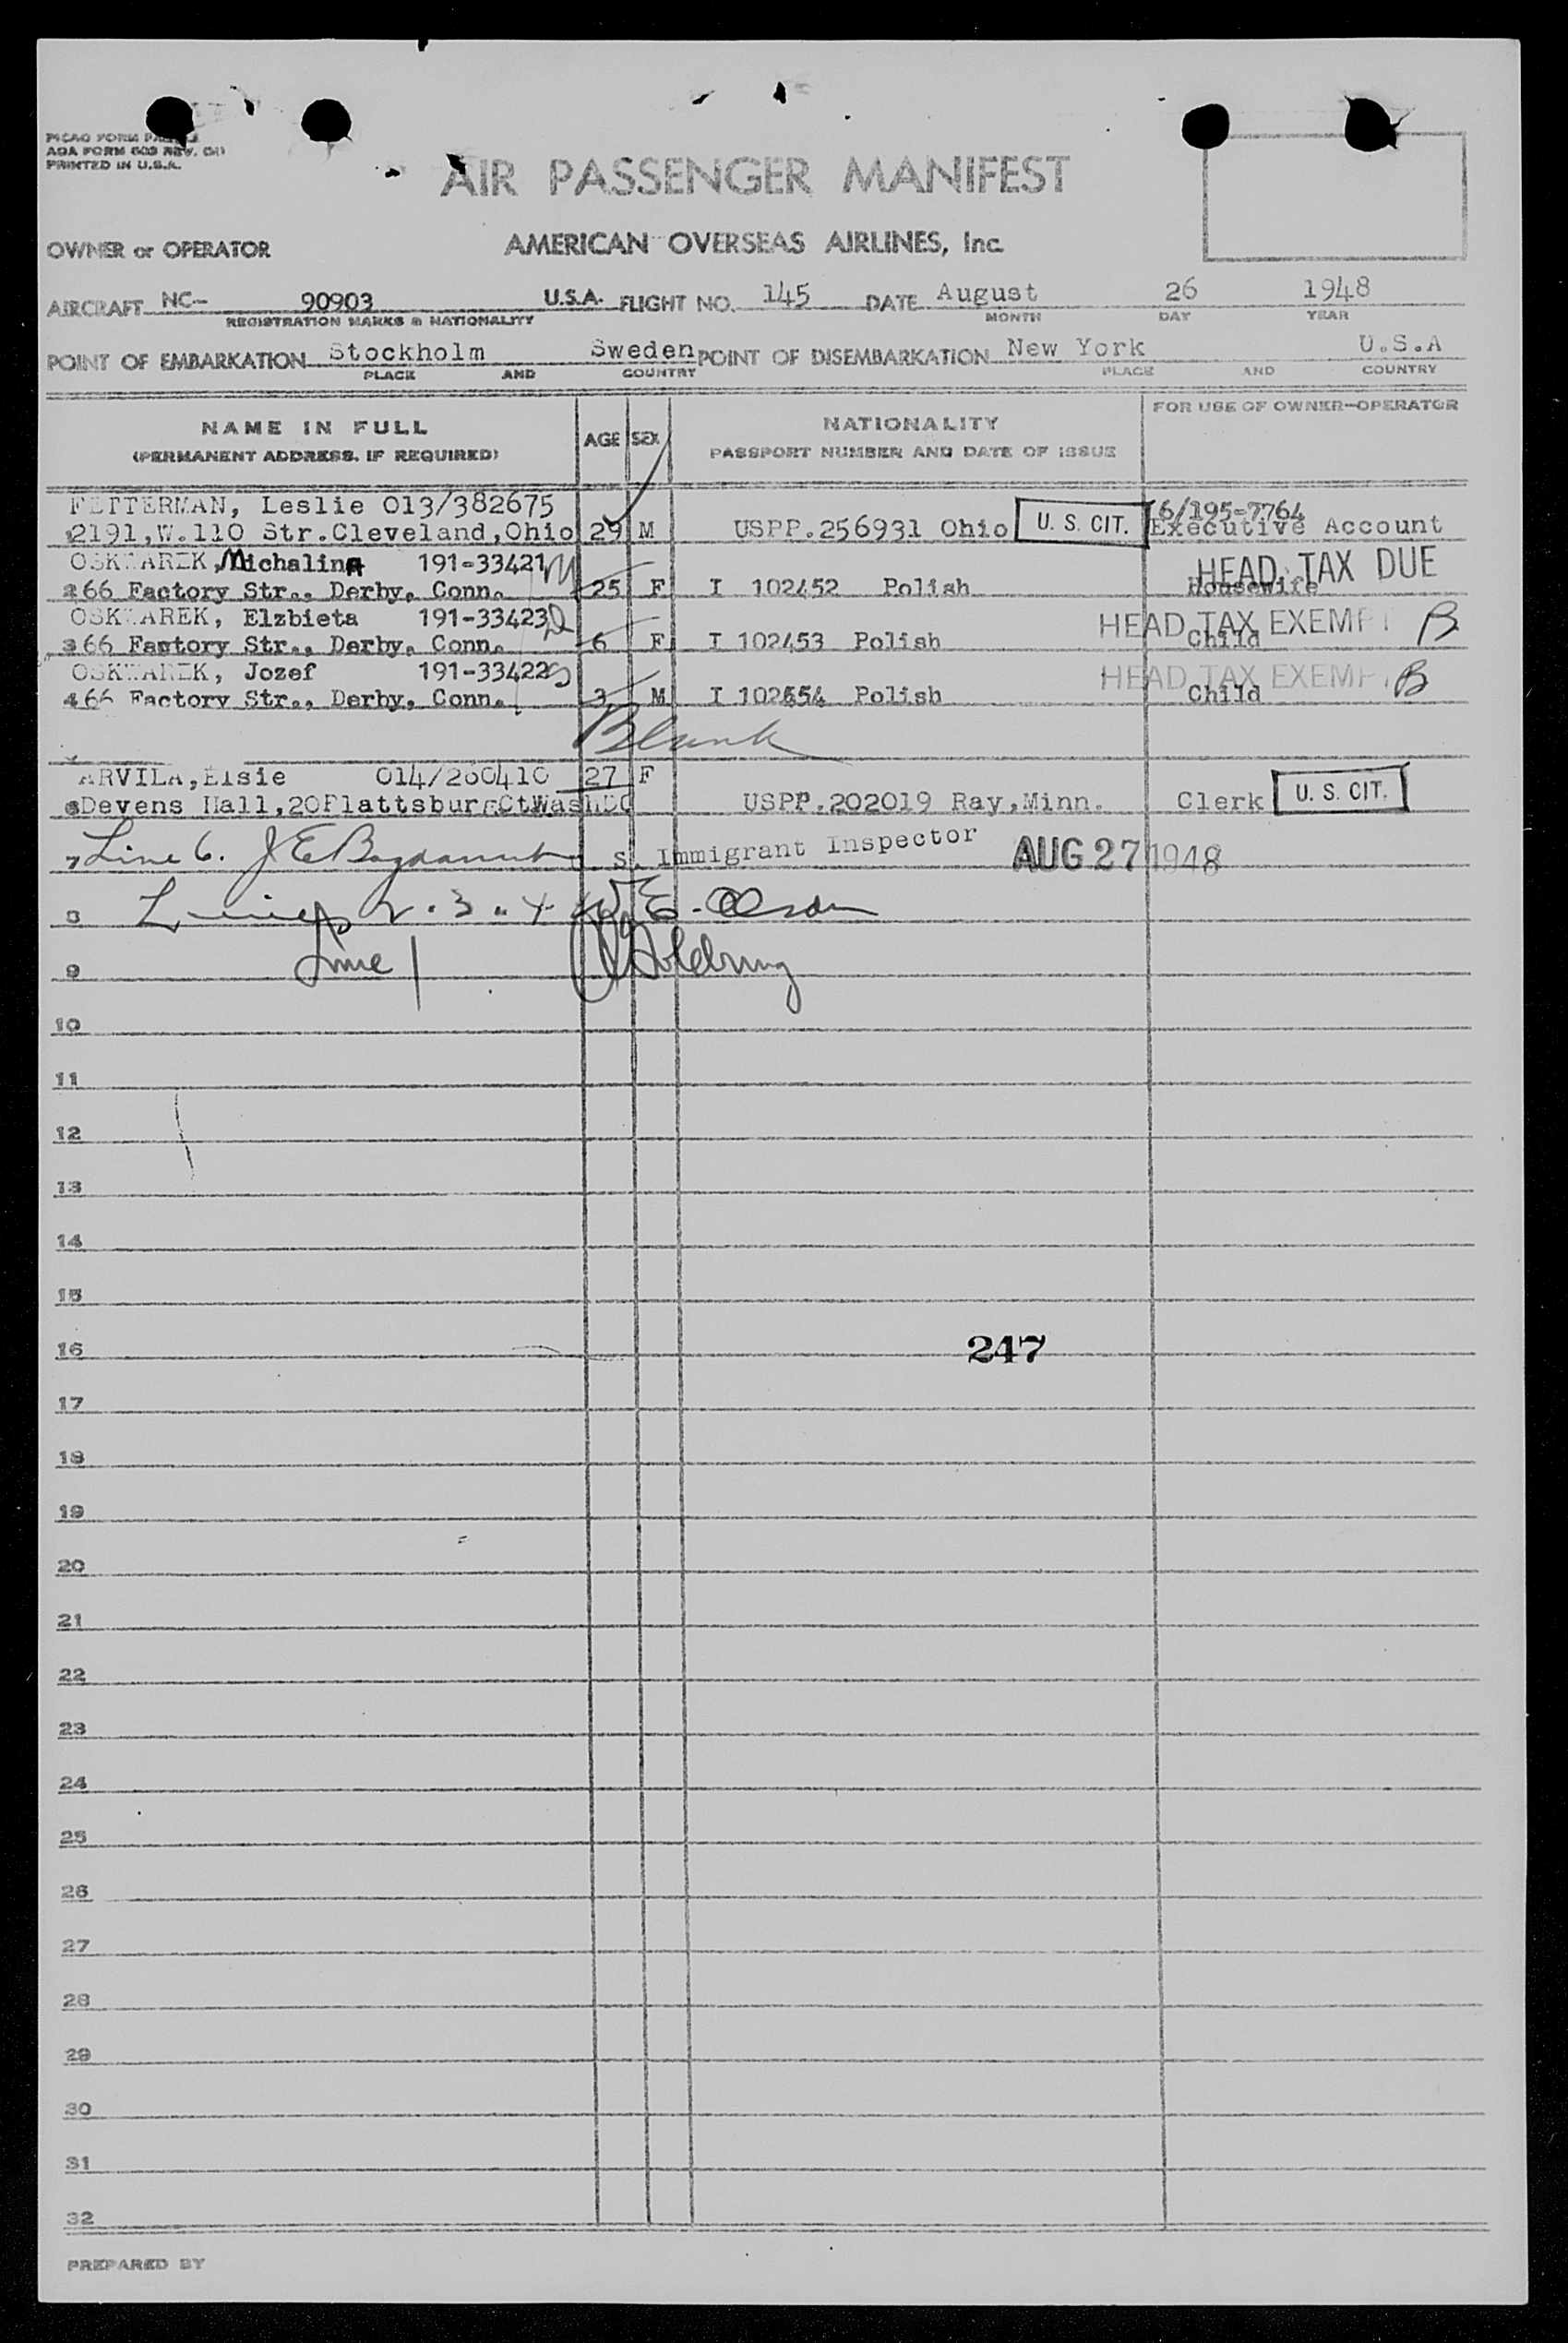 PICAO FORM
AOA FORM 603 REV.
PRINTED IN U.S.A.
AIR PASSENGER MANIFEST
OWNER or OPERATOR AMERICAN OVERSEAS AIRLINES, Inc.
AIRCRAFT NC- 90903 U.S.A. FLIGHT NO. 145 DATE August 26 1948
REGISTRATION MARKS & NATIONALITY MONTH DAY YEAR
POINT OF EMBARKATION Stockholm Sweden POINT OF DISEMBARKATION New York U.S.A
PLACE AND COUNTRY PLACE AND COUNTRY
NAME IN FULL AGE SEX NATIONALITY FOR USE OF OWNER-OPERATOR
(PERMANENT ADDRESS, IF REQUIRED) PASSPORT NUMBER AND DATE OF ISSUE
FETTERMAN, Leslie 013/382675 16/195-7764
2191,W.110 Str.Cleveland,Ohio 29 M USPP.256931 Ohio U. S. CIT. Executive Account
OSKWAREK, Michalina 191-33421 HEAD TAX DUE
2 66 Factory Str., Derby, Conn. 25 F I 102452 Polish Housewife
OSKWAREK, Elzbieta 191-33423 HEAD TAX EXEMPT B
3 66 Factory Str., Derby, Conn. 6 F I 102453 Polish Child
OSKWAREK, Jozef 191-33422 HEAD TAX EXEMPT B
4 66 Factory Str., Derby, Conn. 3 M I 102454 Polish Child
Blank
ARVILA, Elsie 014/260410 27 F
6 Devens Hall,20Plattsburg CtWashDC USPP.202019 Ray,Minn. Clerk U. S. CIT.
7 Line 6. S. Immigrant Inspector AUG 27 1948
8 Lines 2.3.4 W E. Olson
9 Line 1 Goldring
10
11
12
13
14
15
16 247
17
18
19
20
21
22
23
24
25
26
27
28
29
30
31
32
PREPARED BY